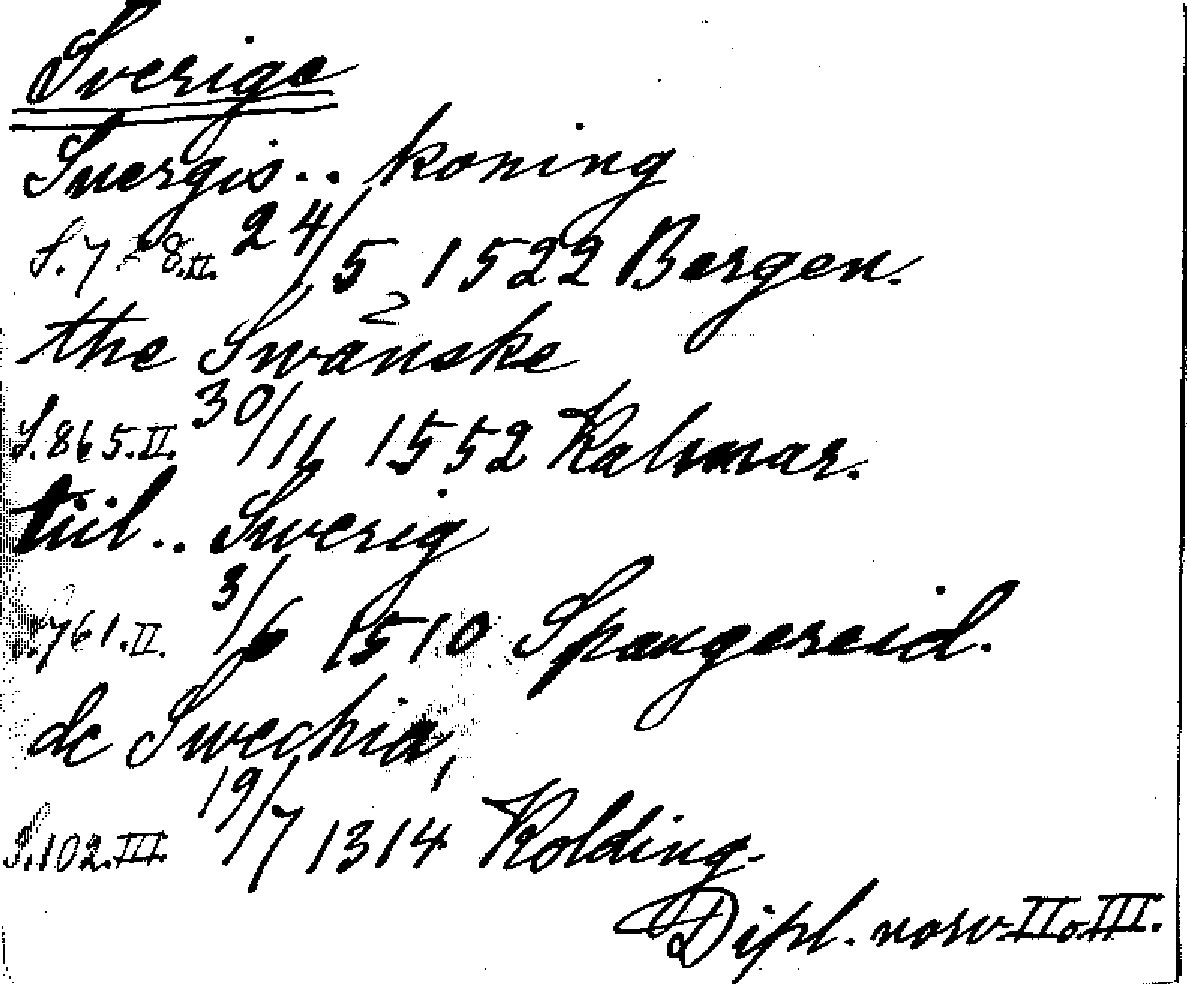 Sverige
Suergis.. koning
S. 7 8.II. 24/5 1522 Bergen.
the Swänske
S. 865.II. 30/11 1552 Kalmar.
tiil.. Swerig
S. 761.II. 3/6 1510 Spangereid.
de Swechia,
S. 102.III. 19/7 1314 Kolding.
Dipl. norv. II o. III.